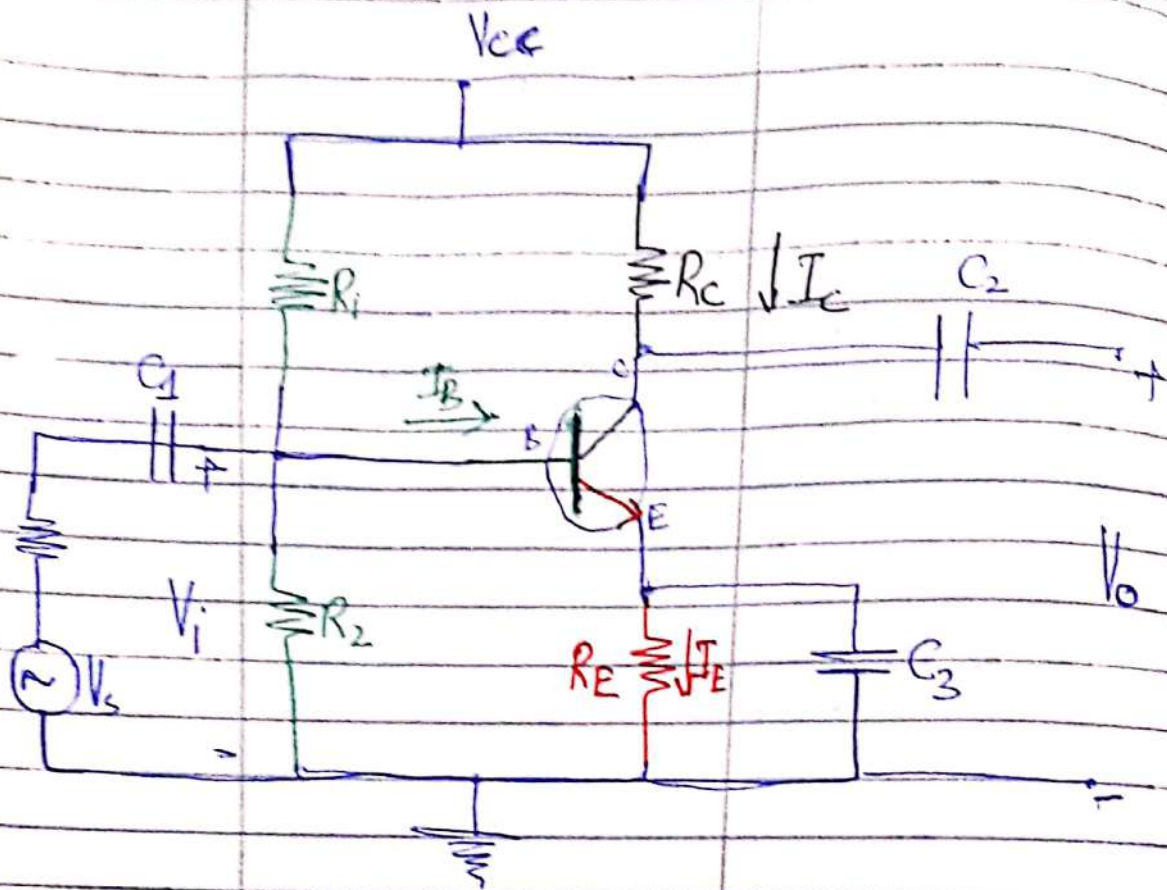 Vcc
R1
RC
IC
C2
C1
IB
C
+
B
+
E
Vi
R2
Vs
RE
IE
C3
Vo
-
-